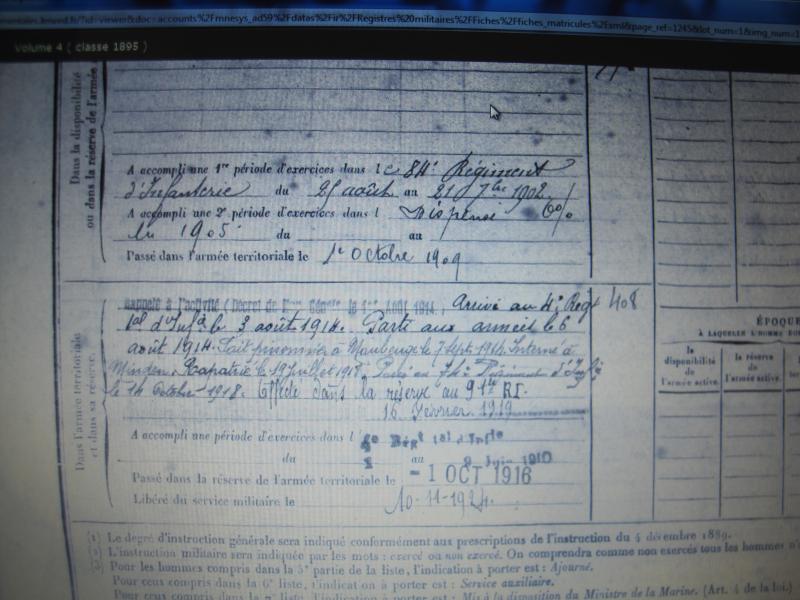 mentales.lenord.fr/?id=viewer&doc=accounts%2Fmnesys_ad59%2Fdatas%2Fir%2FRegistres%20militaires%2FFiches%2Ffiches_matricules%2Exml&page_ref=1245&lot_num=1&img_num=1
Volume 4 ( classe 1895 )
Dans la disponibilité
ou dans la réserve de l'armée
A accompli une 1re période d'exercices dans le 84e Régiment
d'Infanterie du 25 août au 21 7bre 1902
A accompli une 2e période d'exercices dans l Dispensé
en 1905 du au
Passé dans l'armée territoriale le 1er Octobre 1909
Dans l'armée territoriale
et dans sa réserve.
Rappelé à l'activité (Décret de Mon Générale le 1er Août 1914. Arrivé au 4e Regt 408
tal d'Infie le 3 août 1914. Parti aux armées le 6
août 1914. Fait prisonnier à Maubeuge le 7 Sept 1914. Interné à
Minden. Rapatrié le 19 Juillet 1918. Passé au Régiment d'Infie
le 14 Octobre 1918. Affecté dans la réserve au 91e RI.
16 Février 1919
A accompli une période d'exercices dans l 4e Régt tal d'Infie
du 1 au 9 Juin 1910
Passé dans la réserve de l'armée territoriale le - 1 OCT 1916
Libéré du service militaire le 10-11-1924.
ÉPOQUE
À LAQUELLE L'HOMME
la disponibilité de l'armée active.
la réserve de l'armée active.
(1) Le degré d'instruction générale sera indiqué conformément aux prescriptions de l'instruction du 4 décembre 1889.
(2) L'instruction militaire sera indiquée par les mots : exercé ou non exercé. On comprendra comme non exercés tous les hommes
(3) Pour les hommes compris dans la 5e partie de la liste, l'indication à porter est : Ajourné.
Pour ceux compris dans la 6e liste, l'indication à porter est : Service auxiliaire.
Pour ceux compris dans la 7e liste, l'indication à porter est : Mis à la disposition du Ministre de la Marine. (Art. 4 de la loi.)